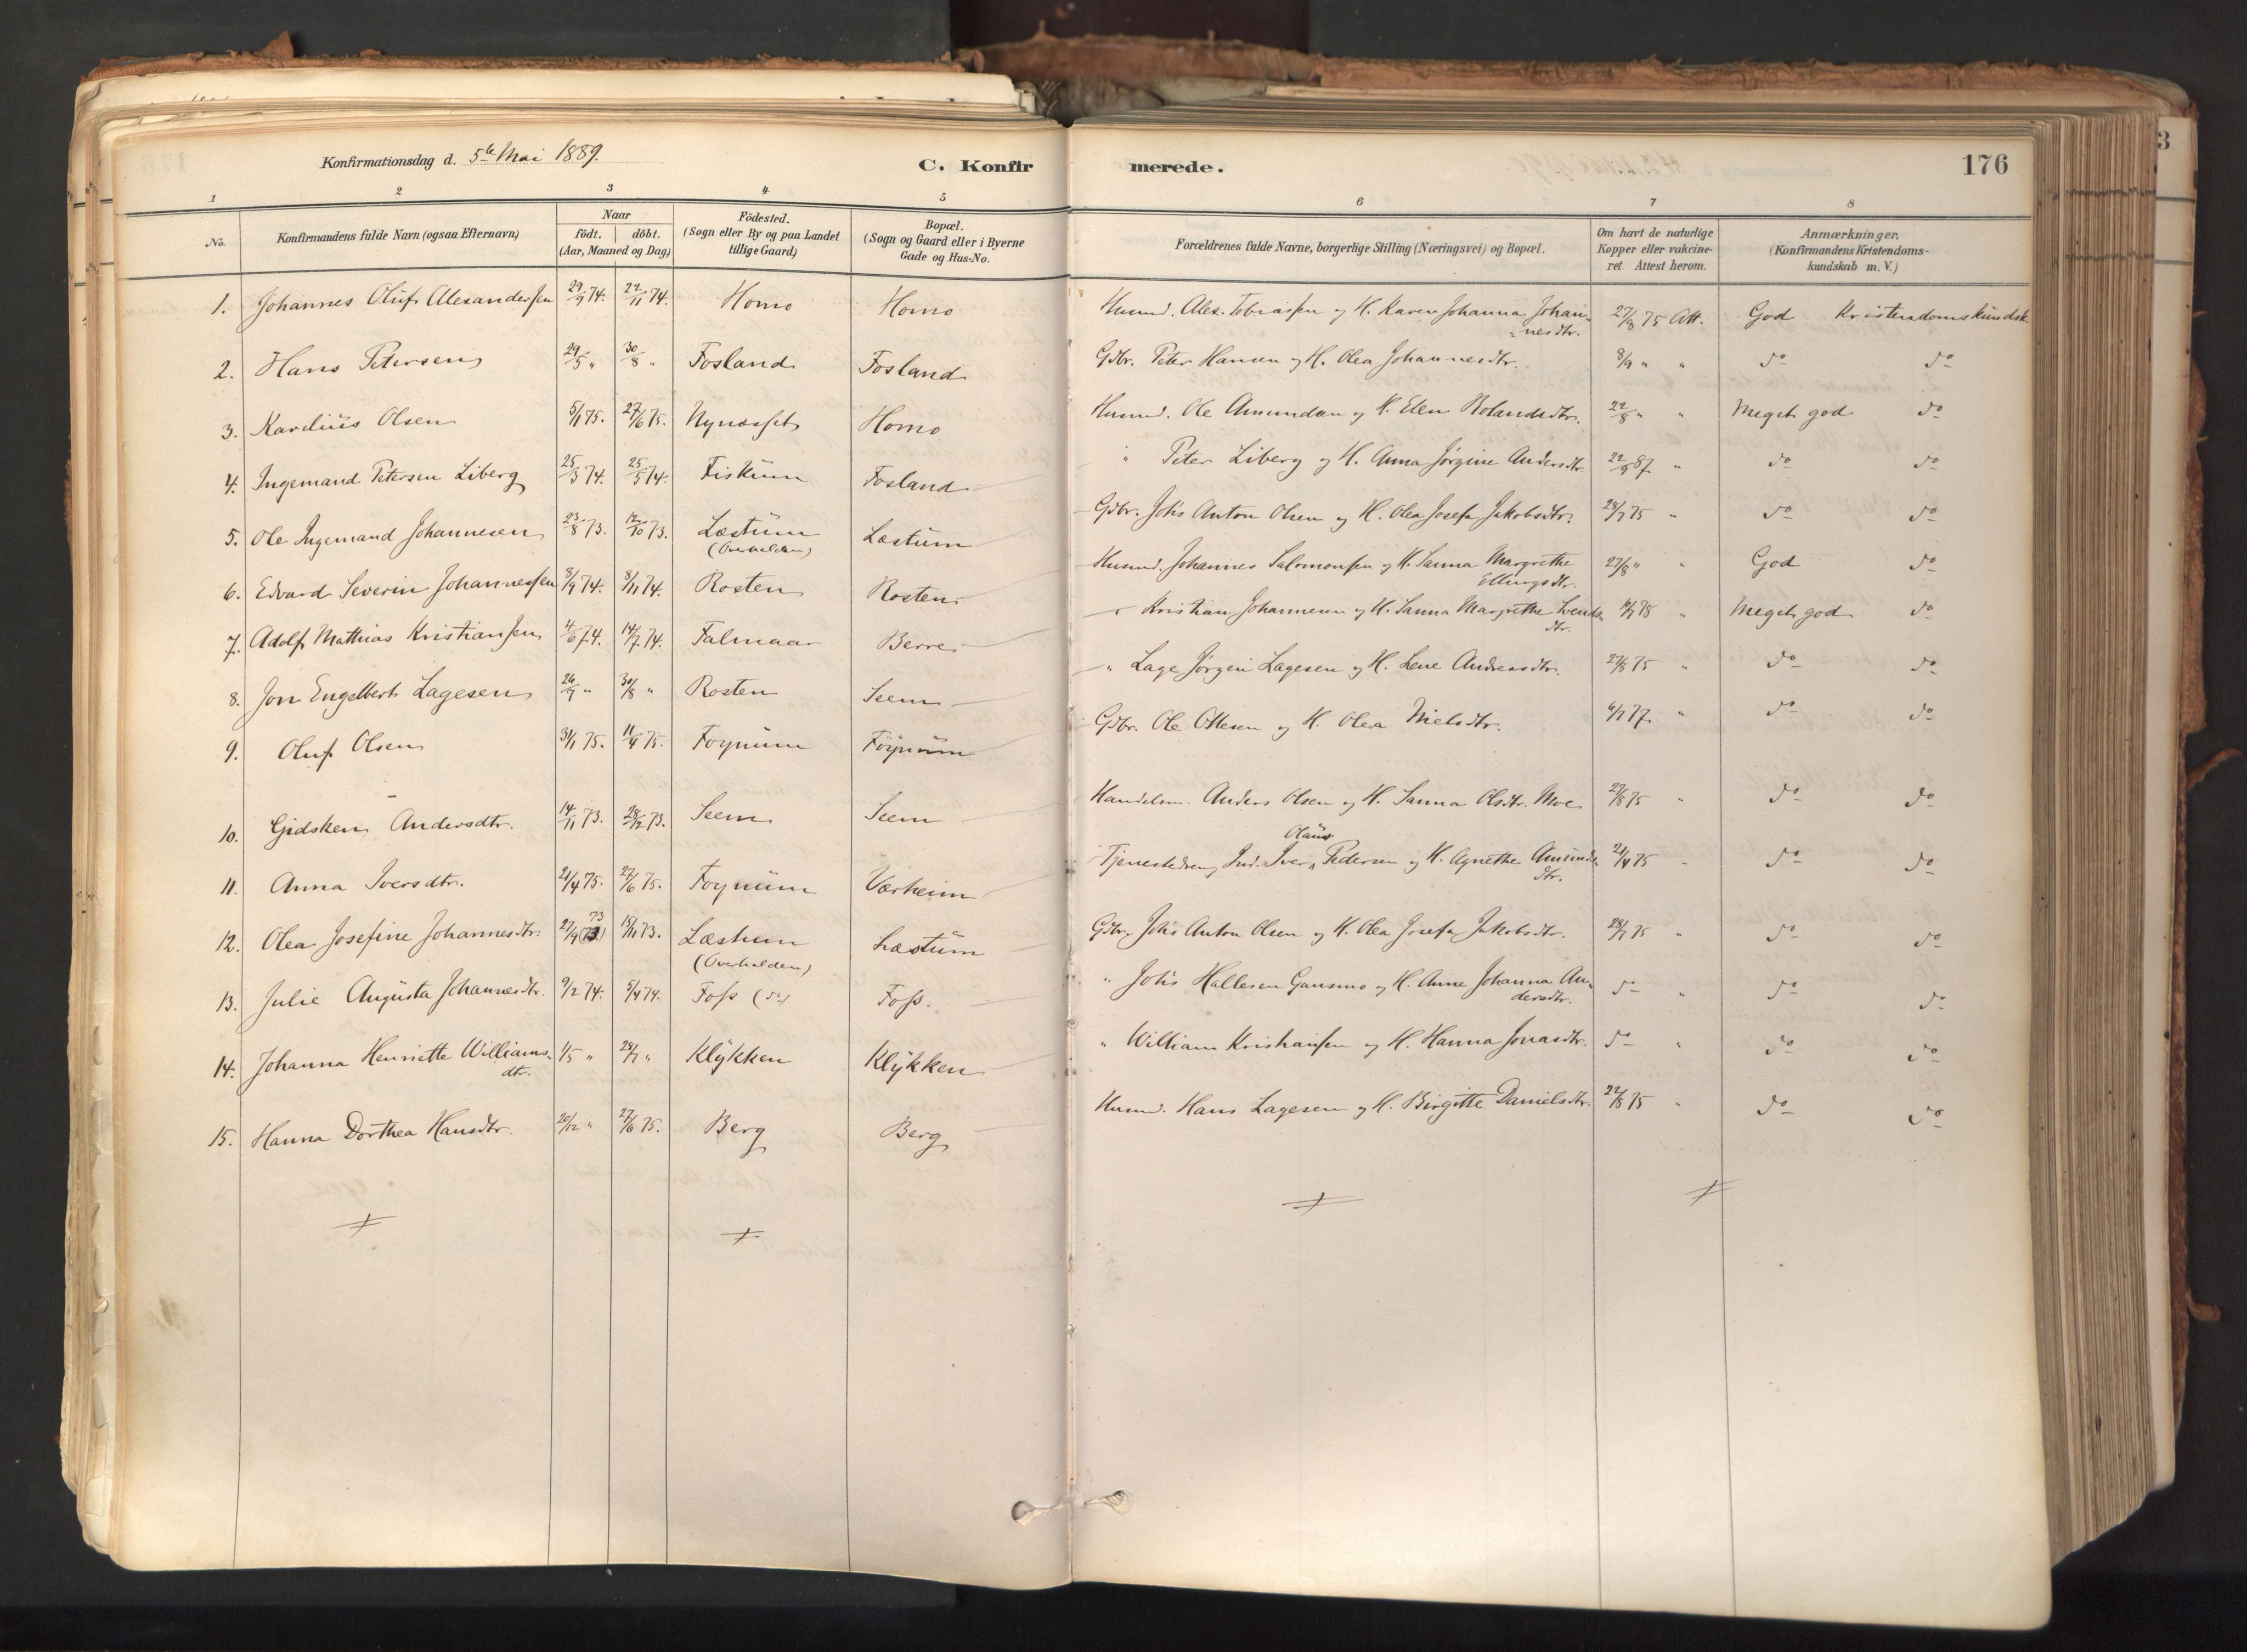 Konfirmationsdag d. 5te Mai 1889.
C. Konfir
merede.
176
1 2 3 4 5 6 7 8
No.
Konfirmandens fulde Navn (ogsaa Efternavn)
Naar
født. | döbt.
(Aar, Maaned og Dag)
Födested.
(Sogn eller By og paa Landet
tillige Gaard)
Bopæl.
(Sogn og Gaard eller i Byerne
Gade og Hus-No.
Forældrenes fulde Navne, borgerlige Stilling (Næringsvei) og Bopæl.
Om havt de naturlige
Kopper eller vakcine-
ret Attest herom.
Anmærkninger.
(Konfirmandens Kristendoms-
kundskab m. V.)
1. Johannes Oluf Alexandersen 29/9 74. 22/11 74. Homo Homo Husmd. Alex. Tobiassen og H. Karen Johanna Johan-
nesdtr. 27/8 75 Att. God Kristendomskundsk.
2. Hans Petersen 29/5 " 30/8 " Fosland Fosland Gdbr. Peter Hansen og H. Olea Johannesdtr. 8/9 " " do do
3. Karelius Olsen 5/1 75. 27/6 75. Nynæsset Homo Husmd. Ole Amundsen og H. Elen Rolandsdtr. 22/8 " " Meget god do
4. Ingemand Petersen Liberg 25/3 74. 25/5 74. Fiskum Fosland " Peter Liberg og H. Anna Jørgine Andersdtr. 22/9 87. " do do
5. Ole Ingemand Johannesen 23/8 73. 12/10 73. Læstum
(Overhalden) Læstum Gdbr. Johs Anton Olsen og H. Olea Josefa Jakobsdtr. 28/7 75 " do do
6. Edvard Severin Johannessen 8/9 74. 8/11 74. Rosten Rosten Husmd. Johannes Salomonsen og H. Sanna Margrethe
Ellingsdtr. 27/8 " " God do
7. Adolf Mathias Kristiansen 4/6 74. 14/7 74. Falmaar Berre Kristian Johannesen og H. Sanna Margrethe Svends-
dtr. 78 " Meget god do
8. Jon Engelbert Lagesen 26/7 " 30/8 " Rosten Seem " Lage Jørgen Lagesen og H. Lene Andreasdtr. 27/8 75 " do do
9. Oluf Olsen 31/1 75. 11/4 75. Foynum Föynum Gdbr. Ole Ottesen og H. Olea Nielsdtr. 6/7 77. " do do
10. Gidsken Andersdtr. 14/11 73. 28/12 73. Seem Seem Handelsm. Anders Olsen og H. Sanna Olsdtr. Moe 27/8 75 " do do
Olaus
11. Anna Iversdtr. 21/4 75. 27/6 75. Foynum Værheim Tjenestedreng Ind. Iver Pedersen og H. Agnethe Amunds-
dtr. 21/4 75 " do do
73
12. Olea Josefine Johannesdtr. 27/9 (73) 15/11 73. Læstum
(Overhalden) Læstum Gdbr. Johs Anton Olsen og H. Olea Josefa Jakobsdtr. 28/7 75 " do do
13. Julie Augusta Johannesdtr. 9/2 74. 5/4 74. Foss (do) Foss. " Johs Hallesen Gansmo og H. Anne Johanna An-
dersdtr. do " do do
14. Johanna Henriette Williams-
dtr. 1/5 " 28/7 " Klykken Klykken " William Kristiansen og H. Hanna Jonasdtr. do " do do
15. Hanna Dorthea Hansdtr. 20/12 " 27/6 75. Berg Berg Husmd. Hans Lagesen og H. Birgitte Danielsdtr. 22/8 75 " do do